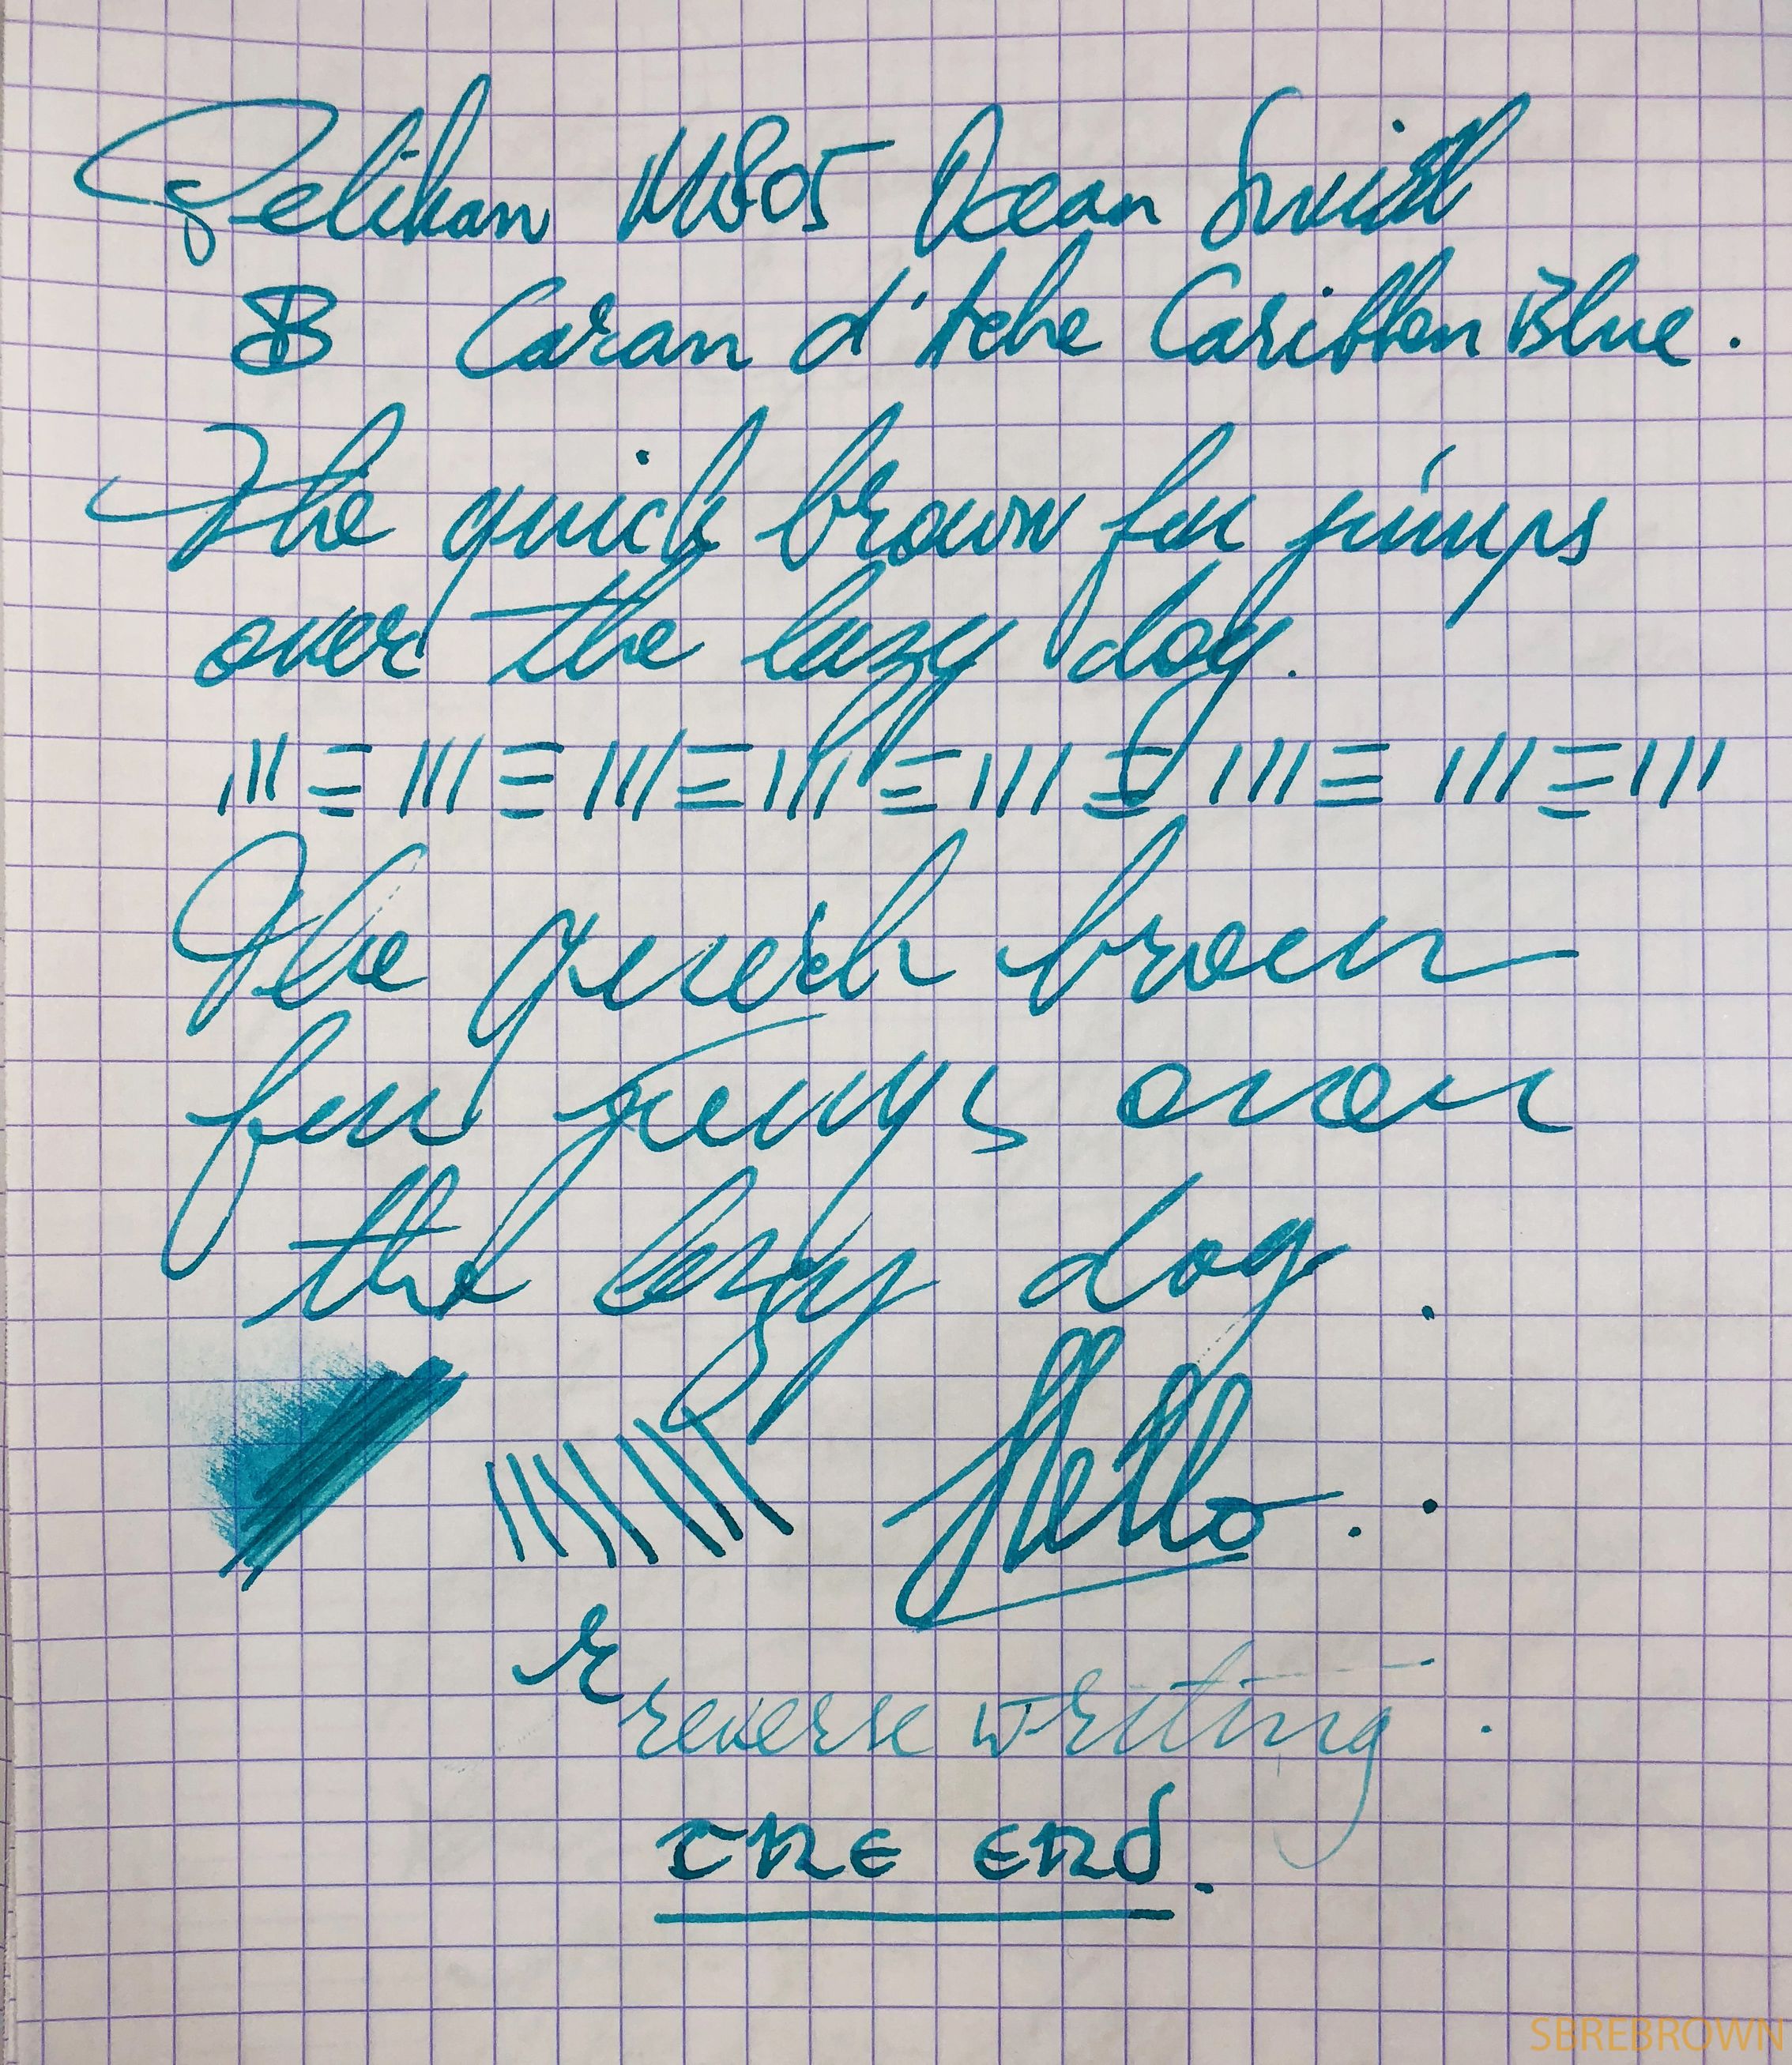 Pelikan M805 Ocean Swirl
B Caran d'Ache Caribben Blue.
The quick brown fox jumps
over the lazy dog.
The quick brown
fox jumps over
the lazy dog.
Hello..
r
reverse writing.
THE END.
SBREBROWN